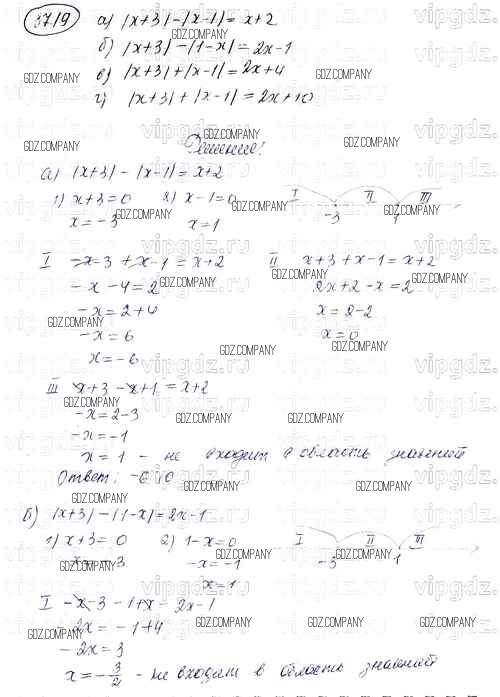 37.19 а) |x+3|-|x-1|= x+2
б) |x+3| -|1-x|= 2x-1
в) |x+3|+|x-1|= 2x+4
г) |x+3|+|x-1|= 2x+10
Решение!
а) |x+3| - |x-1|= x+2
1) x+3=0 2) x-1=0 I II III
x=-3 x=1 -3 1
I -x-3+x-1 = x+2 II x+3+x-1= x+2
-x-4=2 2x+2-x=2
-x=2+4 x=2-2
-x=6 x=0
x=-6
III x+3-x+1 = x+2
-x=2-3
-x=-1
x=1 - не входит в область значений
Ответ: -6; 0
б) |x+3|-|1-x|=2x-1
1) x+3=0 2) 1-x=0 I II III
x=-3 -x=-1 -3 1
x=1
I -x-3-1+x= 2x-1
-2x=-1+4
-2x=3
x=-3/2 - не входит в область значений
GDZ.COMPANY
vipgdz.ru